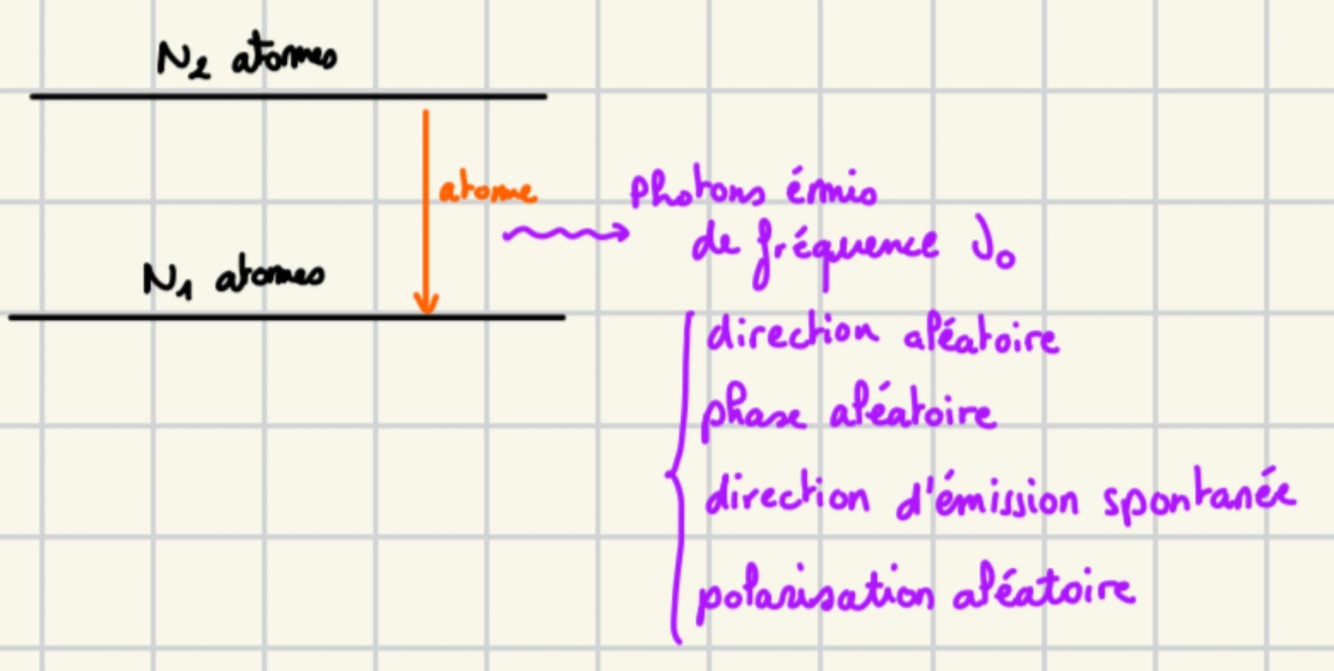 N₂ atomes
atome
photons émis
de fréquence ν₀
N₁ atomes
direction aléatoire
phase aléatoire
direction d'émission spontanée
polarisation aléatoire